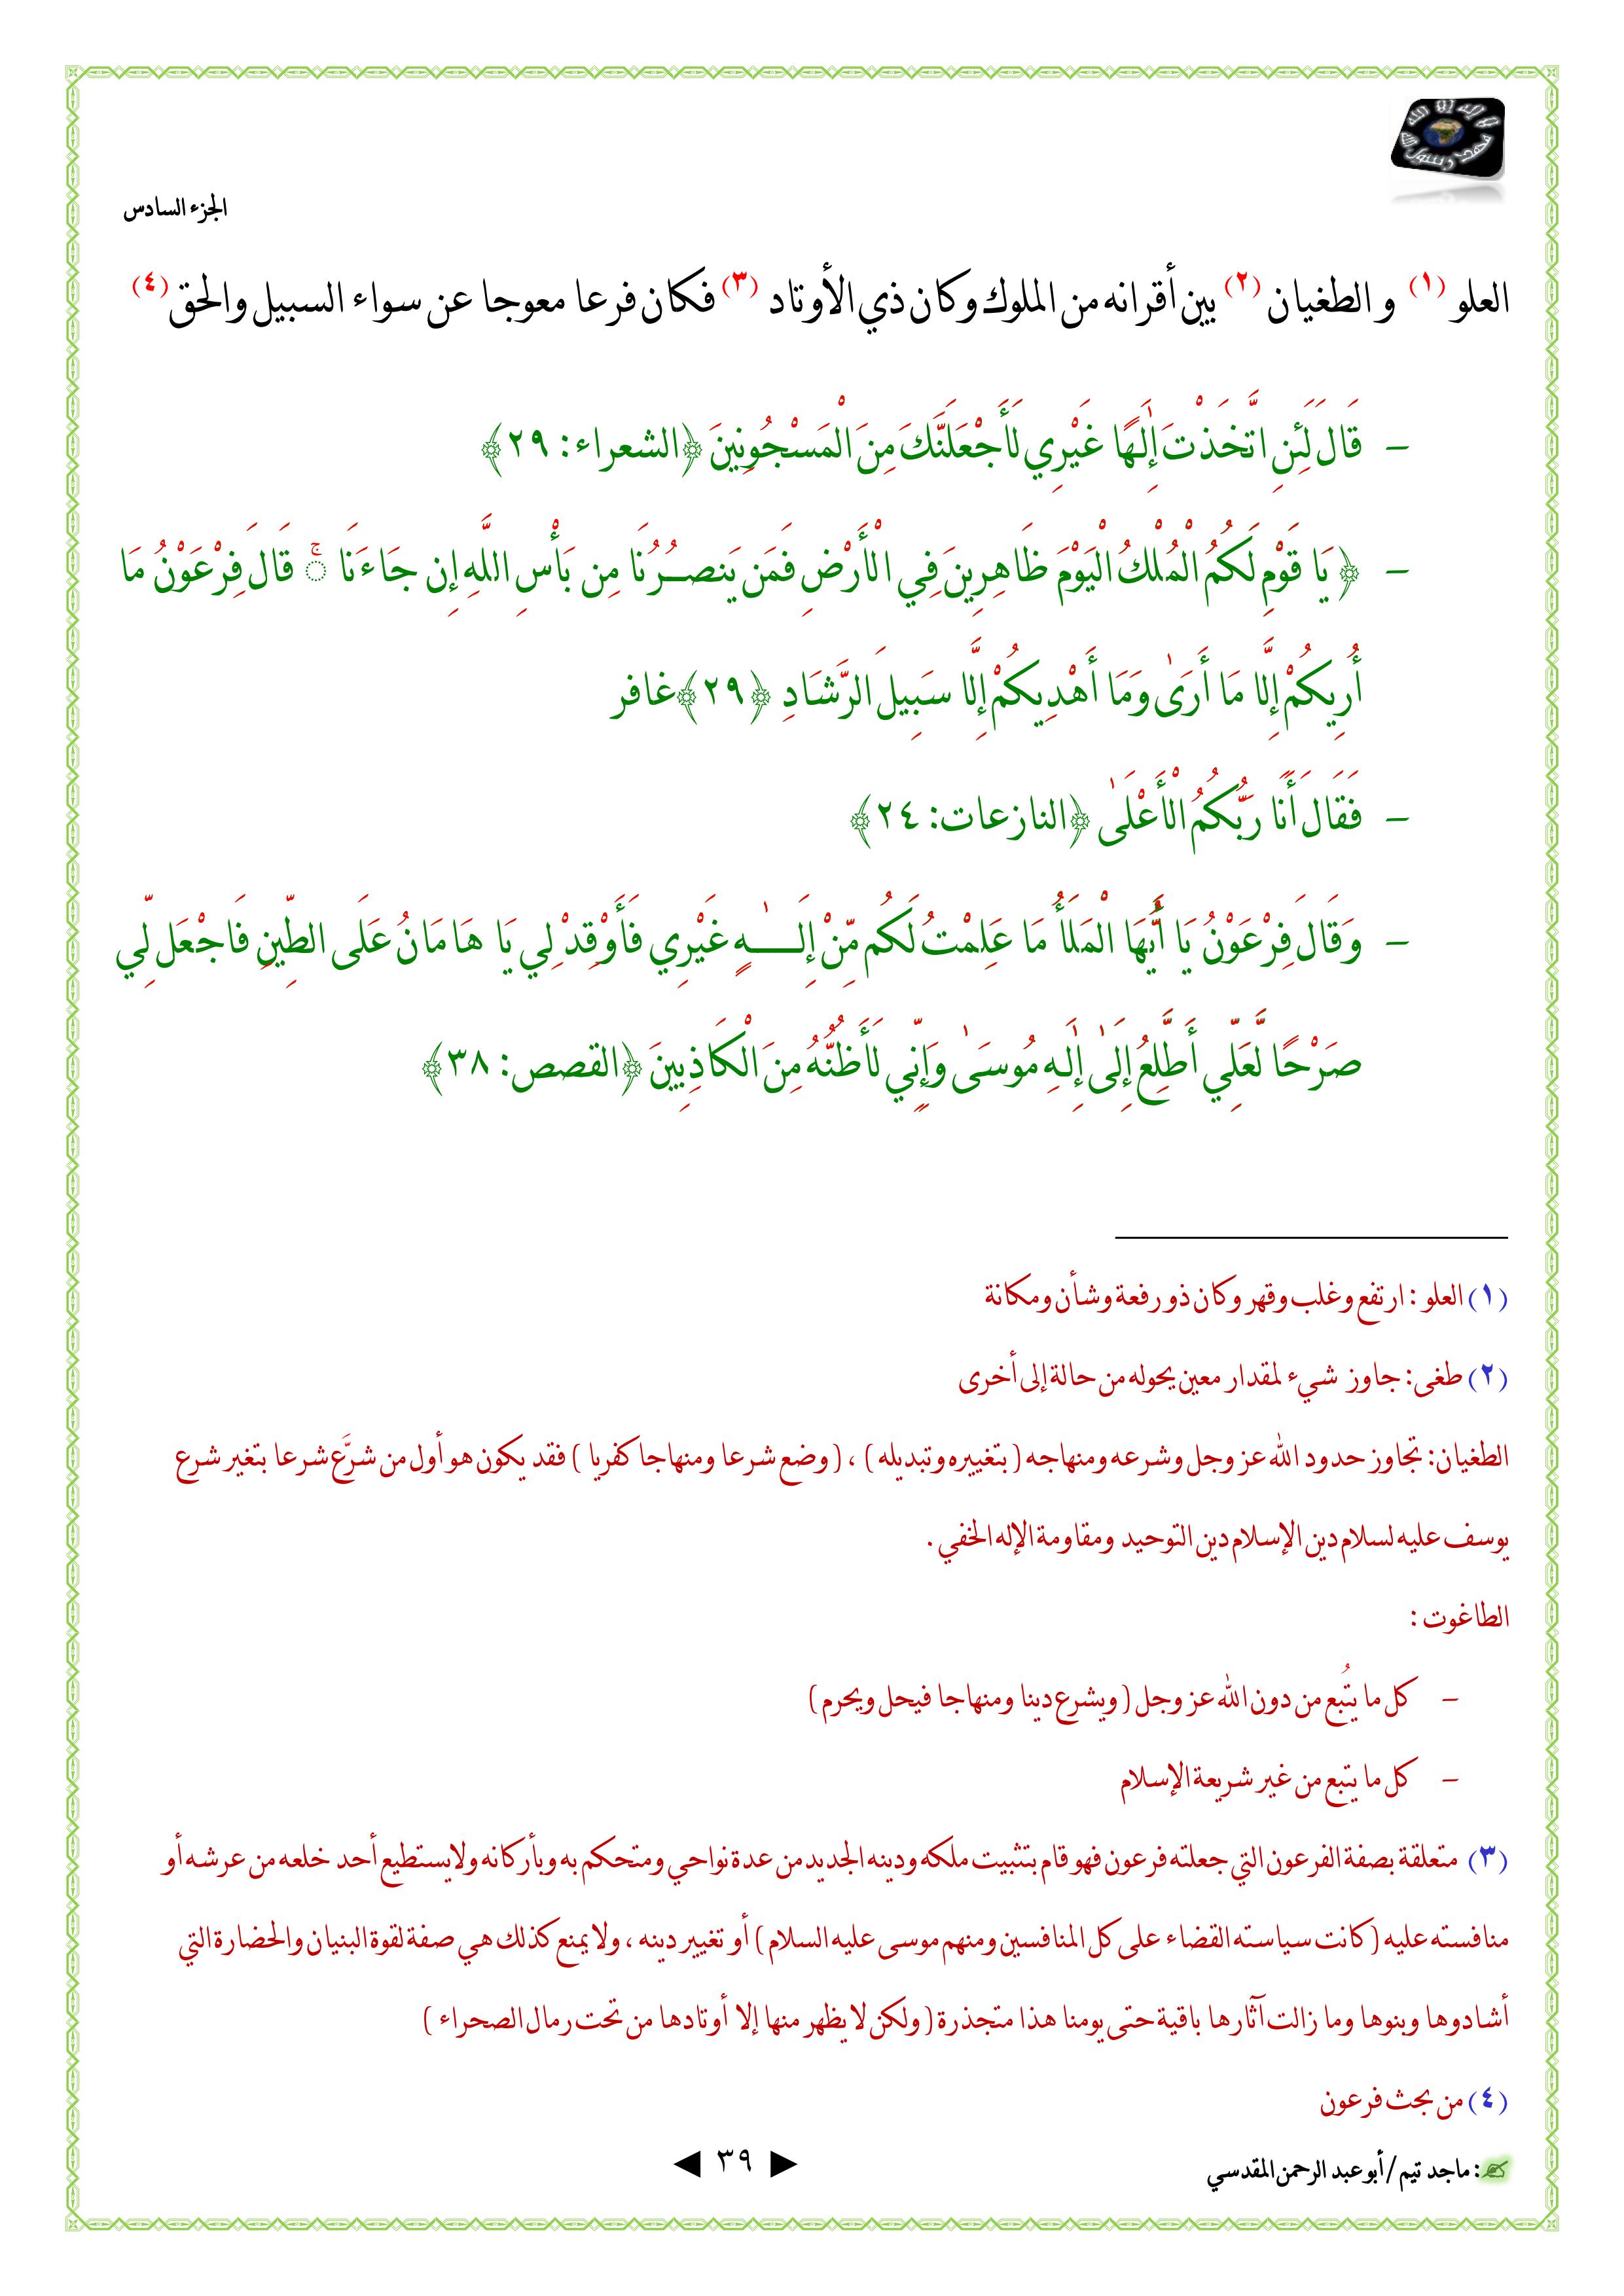 لا إله إلا الله
محمد رسول الله
الجزء السادس
العلو (١) و الطغيان (٢) بين أقرانه من الملوك وكان ذي الأوتاد (٣) فكان فرعا معوجا عن سواء السبيل والحق (٤)
- قَالَ لَئِنِ اتَّخَذْتَ إِلَٰهًا غَيْرِي لَأَجْعَلَنَّكَ مِنَ الْمَسْجُونِينَ ﴿الشعراء: ٢٩﴾
- ﴿يَا قَوْمِ لَكُمُ الْمُلْكُ الْيَوْمَ ظَاهِرِينَ فِي الْأَرْضِ فَمَن يَنصُرُنَا مِن بَأْسِ اللَّهِ إِن جَاءَنَا ۚ قَالَ فِرْعَوْنُ مَا
أُرِيكُمْ إِلَّا مَا أَرَىٰ وَمَا أَهْدِيكُمْ إِلَّا سَبِيلَ الرَّشَادِ ﴿٢٩﴾غافر
- فَقَالَ أَنَا رَبُّكُمُ الْأَعْلَىٰ ﴿النازعات: ٢٤﴾
- وَقَالَ فِرْعَوْنُ يَا أَيُّهَا الْمَلَأُ مَا عَلِمْتُ لَكُم مِّنْ إِلَـٰهٍ غَيْرِي فَأَوْقِدْ لِي يَا هَامَانُ عَلَى الطِّينِ فَاجْعَل لِّي
صَرْحًا لَّعَلِّي أَطَّلِعُ إِلَىٰ إِلَٰهِ مُوسَىٰ وَإِنِّي لَأَظُنُّهُ مِنَ الْكَاذِبِينَ ﴿القصص: ٣٨﴾
(١) العلو : ارتفع وغلب وقهر وكان ذو رفعة وشأن ومكانة
(٢) طغى: جاوز شيء لمقدار معين يحوله من حالة إلى أخرى
الطغيان: تجاوز حدود الله عز وجل وشرعه ومنهاجه ( بتغييره وتبديله ) ، ( وضع شرعا ومنهاجا كفريا ) فقد يكون هو أول من شرَّع شرعا بتغير شرع
يوسف عليه لسلام دين الإسلام دين التوحيد ومقاومة الإله الخفي .
الطاغوت :
- كل ما يتُبع من دون الله عز وجل ( ويشرع دينا ومنهاجا فيحل ويحرم )
- كل ما يتبع من غير شريعة الإسلام
(٣) متعلقة بصفة الفرعون التي جعلته فرعون فهو قام بتثبيت ملكه ودينه الجديد من عدة نواحي ومتحكم به وبأركانه ولا يستطيع أحد خلعه من عرشه أو
منافسته عليه (كانت سياسته القضاء على كل المنافسين ومنهم موسى عليه السلام ) أو تغيير دينه ، ولا يمنع كذلك هي صفة لقوة البنيان والحضارة التي
أشادوها وبنوها وما زالت آثارها باقية حتى يومنا هذا متجذرة ( ولكن لا يظهر منها إلا أوتادها من تحت رمال الصحراء )
(٤) من بحث فرعون
✍: ماجد تيم / أبو عبد الرحمن المقدسي
◄ ٣٩ ►